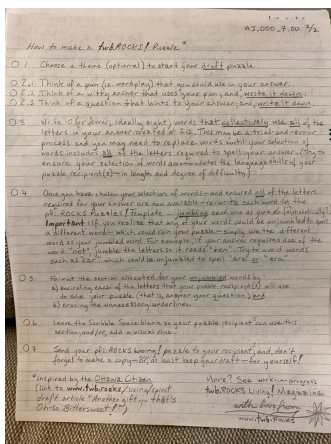 AJ.000_7.00 2/2
How to make a twbROCKS! Puzzle*
O 1 Choose a theme (optional) to start your draft puzzle.
O 2.1 Think of a pun (ie. wordplay) that you could use in your answer.
O 2.2 Think of a witty answer that uses your pun; and, write it down.
O 2.3 Think of a question that hints to your answer; and, write it down.
O 3 Write (or fewer, ideally eight) words that collectively use all of the
letters in your answer created at 2.2. This may be a trial-and-error
process and you may need to replace words until your selection of
words includes all of the letters required to spell your answer. (Try to
ensure your selection of words accommodates the language skills of your
puzzle recipient(s) — in length and degree of difficulty.)
O 4 Once you have chosen your selection of words — and ensured all of the letters
required for your answer are now available — rewrite each word in the
ROCKS Puzzles! Template — jumbling each one as you do
Important: If you realize that any of your words could be unjumbled to spell
a different word — which could ruin your puzzle — simply use the different
word as your jumbled word. For example, if your answer requires use of the
word "net", jumble the letters so it reads "ten". Try to avoid words
such as "ear" which could be unjumbled to spell "are" or "era".
O 5 Format the section allocated for your unjumbled words by:
a) encircling each of the letters that your puzzle recipient(s) will use
to solve your puzzle (that is, answer your question) and
b) erasing the unnecessary underlines.
O 6 Leave the Scribble Space blank so your puzzle recipient can use this
section; and/or, add a visual clue.
O 7 Send your ROCKS Living! puzzle to your recipient; and, don't
forget to make a copy — or, at least keep your draft — for yourself!
*inspired by the Ottawa Citizen
(link to www.twb.rocks/living/spirit
draft article "Another gift that's
Oh-so Bittersweet!")
More? See work-in-progress
twb.ROCKS Living! Magazine
with love from
www.twb.rocks